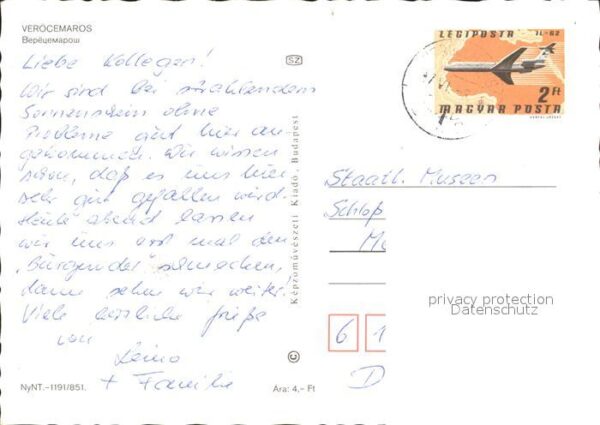 VERŐCEMAROS
Верёцемарош
Liebe Kollegen!
Wir sind bei strahlendem
Sonnenschein ohne
Probleme gut hier an-
gekommen. Wir wissen
schon, daß es uns hier
sehr gut gefallen wird.
Heute abend lassen
wir uns erst mal den
"Burgunder" schmecken,
dann sehen wir weiter!
Viele herzliche Grüße
von
+ Familie
NyNT.–1191/851.
Ara: 4,– Ft
SZ
Képzőművészeti Kiadó, Budapest
LÉGIPOSTA
IL-62
2 Ft
MAGYAR POSTA
Staatl. Museen
Schloß
6 1
D
privacy protection
Datenschutz